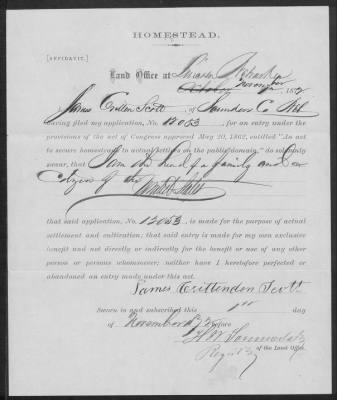 HOMESTEAD.
[AFFIDAVIT.]
Land Office at Lincoln Nebraska
October November 1st, 1872
James Crittenden Scott, of Saunders Co Neb
having filed my application, No. 12053, for an entry under the
provisions of the act of Congress approved May 20, 1862, entitled "An act
to secure homesteads to actual settlers on the public domain," do solemnly
swear, that I am the head of a family and a
citizen of the United States
that said application, No. 12053, is made for the purpose of actual
settlement and cultivation; that said entry is made for my own exclusive
benefit and not directly or indirectly for the benefit or use of any other
person or persons whomsoever; neither have I heretofore perfected or
abandoned an entry made under this act.
James Crittenden Scott
Sworn to and subscribed this 1st day
of November 1872 before
Register of the Land Office.